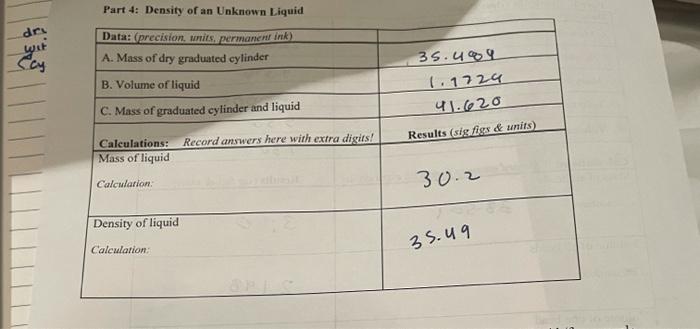 Part 4: Density of an Unknown Liquid
dry
Data: (precision, units, permanent ink)
A. Mass of dry graduated cylinder 35.489
B. Volume of liquid 1.1724
C. Mass of graduated cylinder and liquid 41.620
Calculations: Record answers here with extra digits! Results (sig figs & units)
Mass of liquid
Calculation: 30.2
Density of liquid
Calculation: 35.49